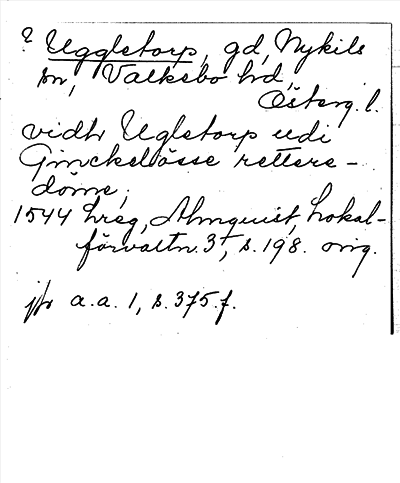 ? Uggletorp, gd, Nykils
sn, Valkebo hd,
Österg. l.
vidh Ugletorp udi
Ginckelösse rettere-
döme,
1544 hreg, Almquist, Lokal-
förvaltn. 3, s. 198. orig.
jfr a.a. 1, s. 375 f.